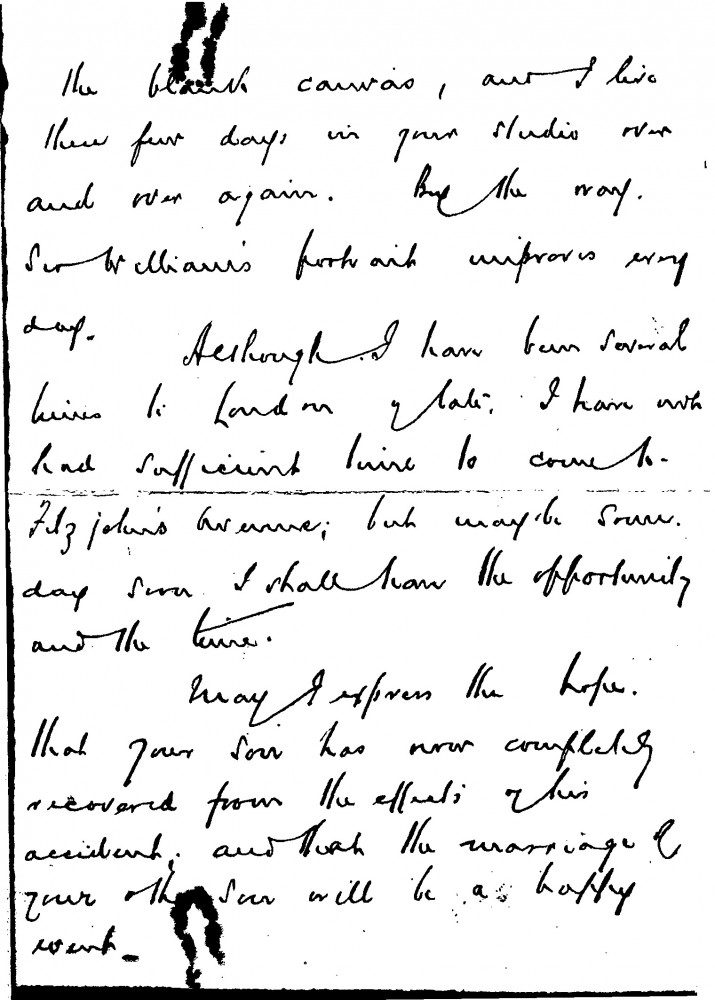 the blank canvas, and I live
those few days in your studio over
and over again. By the way.
Sir William's portrait improves every
day.
Although I have been several
times to London of late, I have not
had sufficient time to come to
Fitzjohn's Avenue; but maybe some
day soon I shall have the opportunity
and the time.
May I express the hope.
that your son has now completely
recovered from the effects of his
accident; and that the marriage of
your other son will be a happy
event_